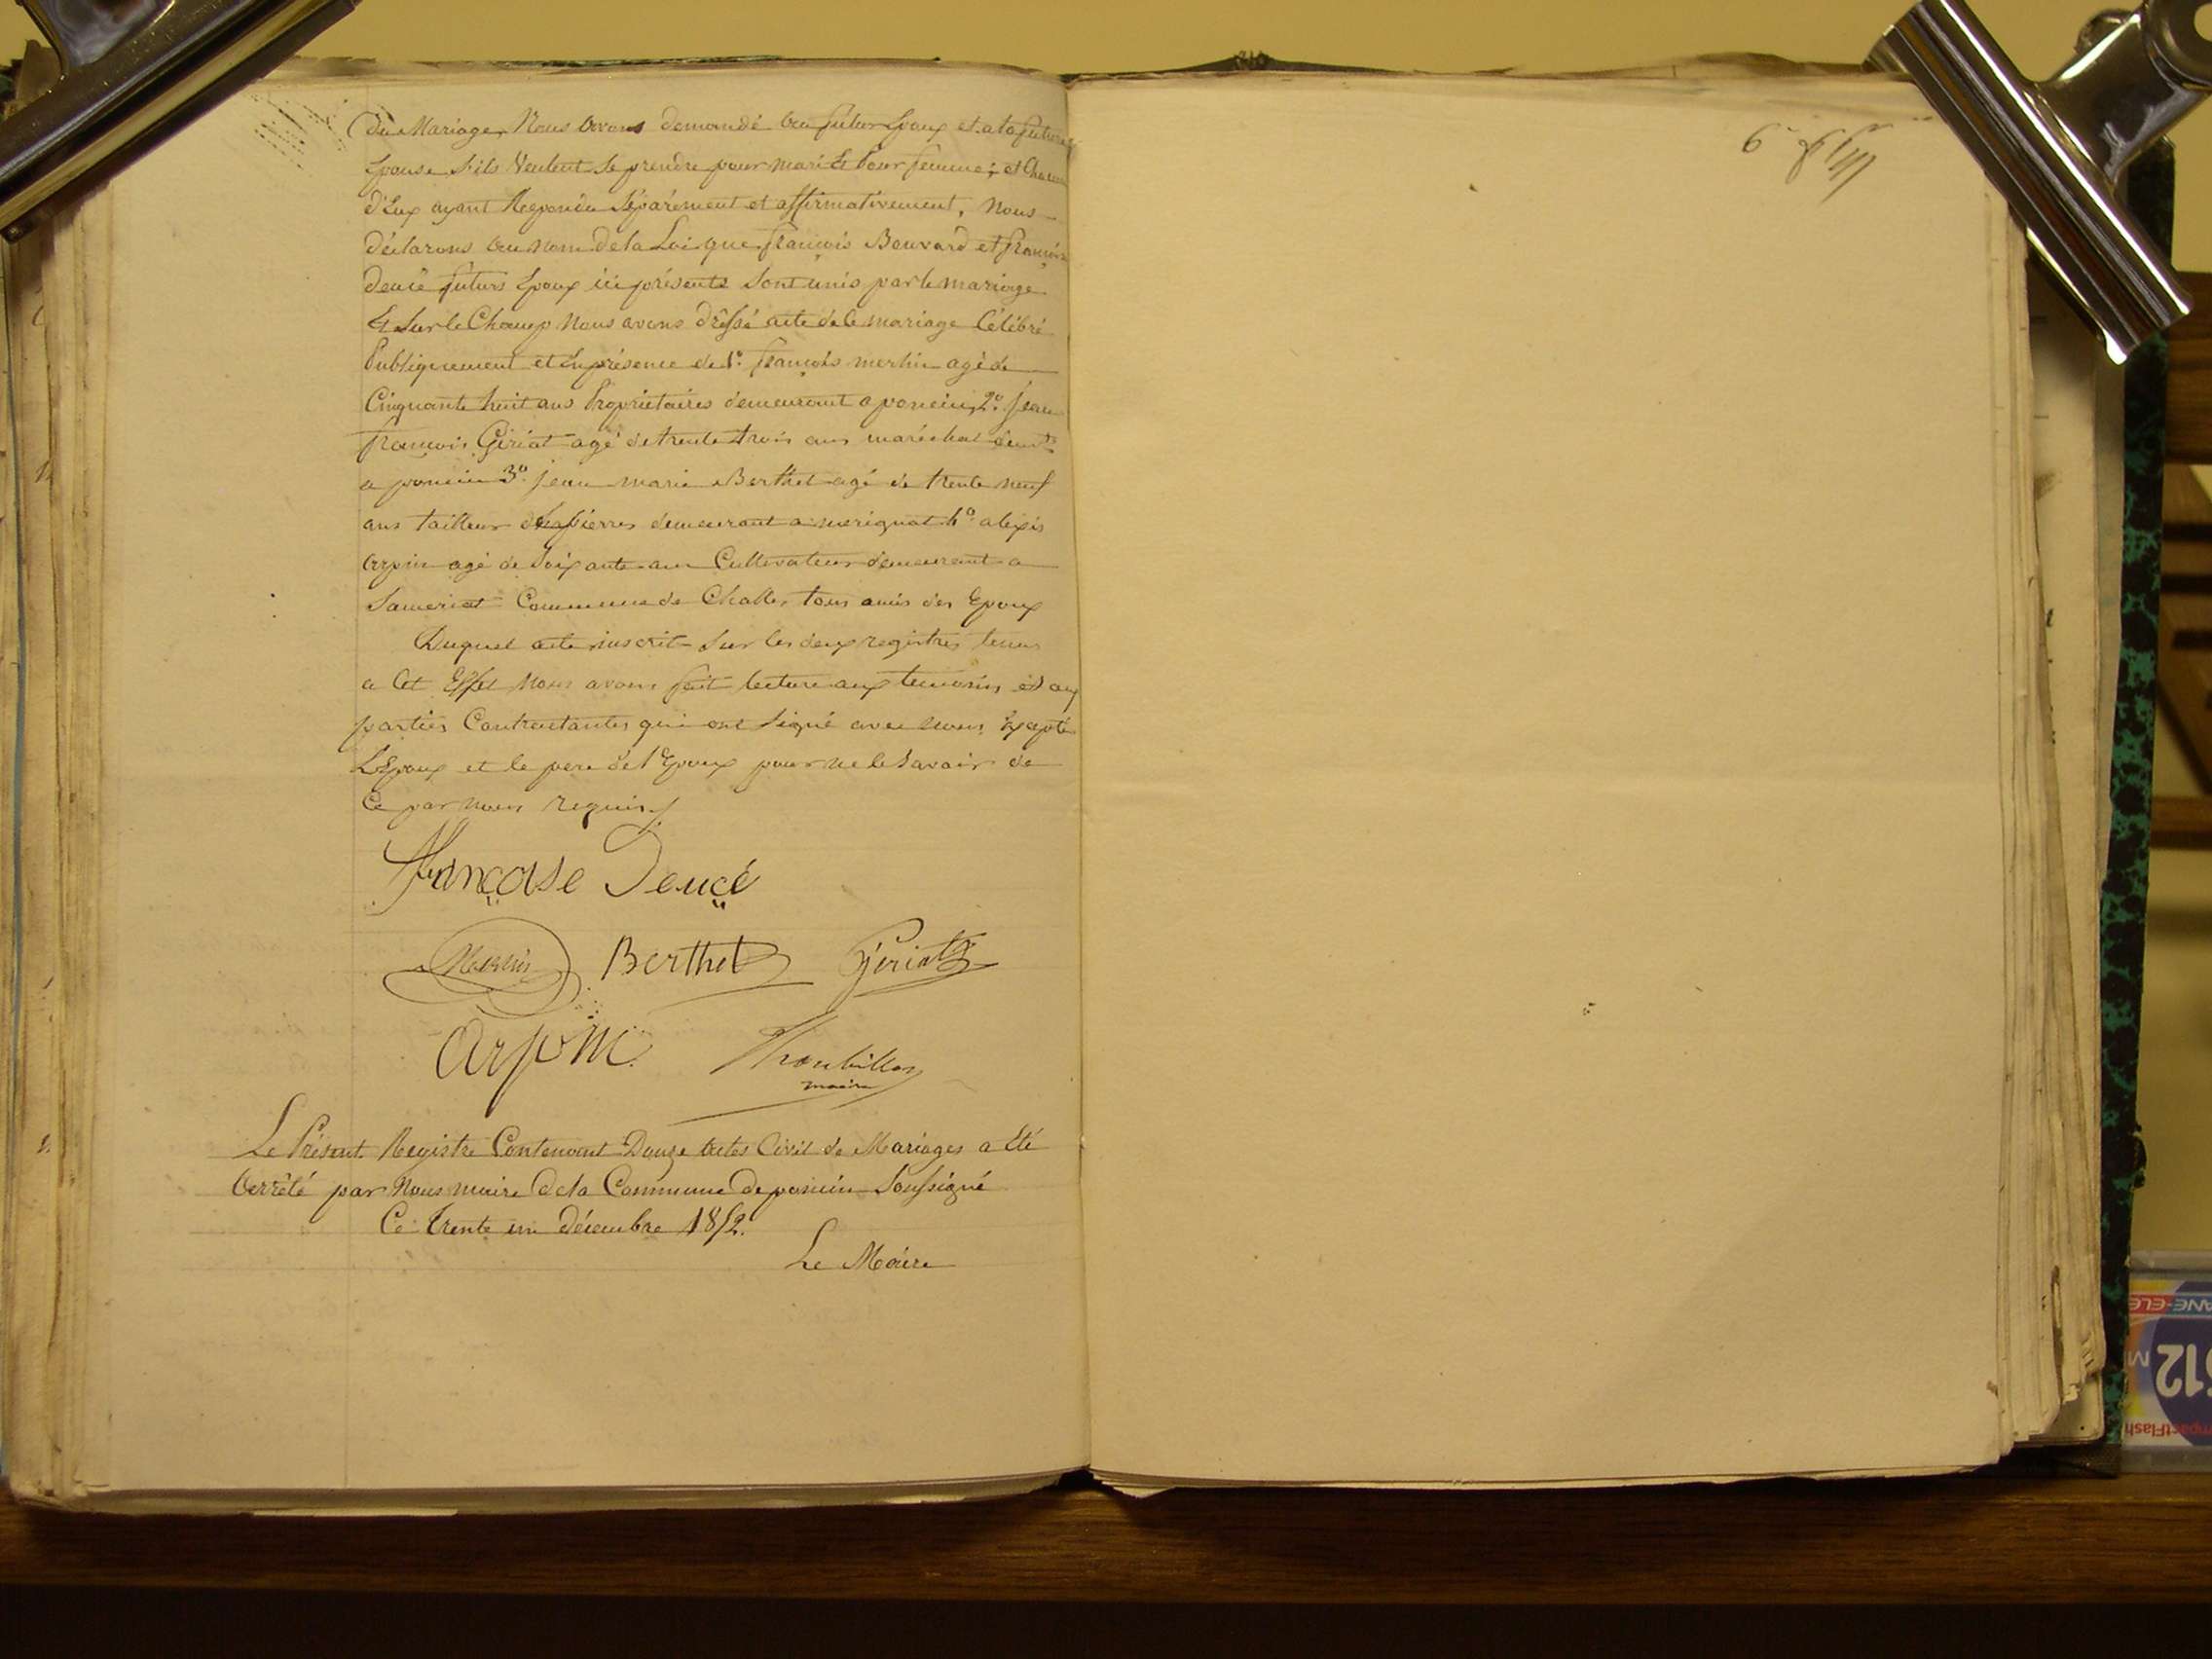 du Mariage, Nous avons demandé au futur Epoux et a la future
Epouse s'ils Veulent se prendre pour mari et Pour femme; et Chacun
d'Eux ayant Repondu Séparément et affirmativement, Nous
déclarons au nom de la Loi que françois Bouvard et françoise
deucé futurs Epoux ici présents sont unis par le mariage
Et Sur le Champ Nous avons dréssé acte de ce mariage Célébré
Publiquement et En présence de 1º. françois merlin agé de
Cinquante huit ans Propriétaires demeurant a poncin, 2º. Jean
francois Gériat agé de trente trois ans maréchal demt
a poncin 3º. jean marie Berthet agé de trente neuf
ans tailleur de pierres demeurant a merignat 4º. alexis
arpin agé de Soixante ans Cultivateur demeurant a
Sameriat Commune de Challes, tous amis des Epoux
Duquel acte inscrit Sur les deux registres tenus
a Cet Effet Nous avons fait lecture aux temoins et aux
parties Contractantes qui ont Signé avec nous, Excepté
L'Epoux et le pere de l'Epoux pour ne le Savoir de
Ce par nous requis.
françoise Deuçé
Merlin Berthet Gériat
arpin
maire
Le Présent Registre Contenant Douze actes Civil de Mariages a Eté
arrêté par Nous maire de la Commune de poncin Soussigné
Ce Trente un décembre 1852.
Le Maire
6e
512